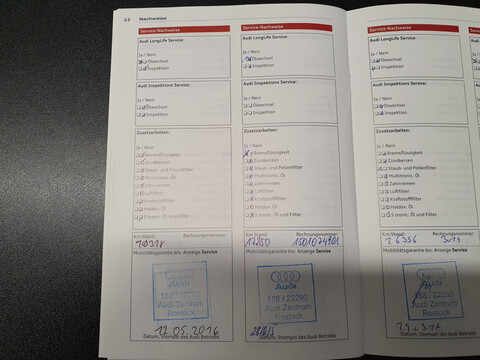 22 Nachweise
Service-Nachweise
Audi LongLife Service:
Ja / Nein
Ölwechsel
Inspektion
Audi Inspektions Service:
Ja / Nein
Ölwechsel
Inspektion
Zusatzarbeiten:
Ja / Nein
Bremsflüssigkeit
Zündkerzen
Staub- und Pollenfilter
Multitronic: Öl
Zahnriemen
Luftfilter
Kraftstofffilter
Haldex: Öl
S tronic: Öl und Filter
Km Stand:
Rechnungsnummer:
Mobilitätsgarantie bis: Anzeige Service
Audi
188 / 22290
Audi Zentrum
Rostock
12.05.2016
Datum, Stempel des Audi Betriebs
Service-Nachweise
Audi LongLife Service:
Ja / Nein
Ölwechsel
Inspektion
Audi Inspektions Service:
Ja / Nein
Ölwechsel
Inspektion
Zusatzarbeiten:
Ja / Nein
Bremsflüssigkeit
Zündkerzen
Staub- und Pollenfilter
Multitronic: Öl
Zahnriemen
Luftfilter
Kraftstofffilter
Haldex: Öl
S tronic: Öl und Filter
Km Stand:
Rechnungsnummer:
17250
Mobilitätsgarantie bis: Anzeige Service
Audi
188 / 22290
Audi Zentrum
Rostock
Datum, Stempel des Audi Betriebs
Service-Nachweise
Audi LongLife Service:
Ja / Nein
Ölwechsel
Inspektion
Audi Inspektions Service:
Ja / Nein
Ölwechsel
Inspektion
Zusatzarbeiten:
Ja / Nein
Bremsflüssigkeit
Zündkerzen
Staub- und Pollenfilter
Multitronic: Öl
Zahnriemen
Luftfilter
Kraftstofffilter
Haldex: Öl
S tronic: Öl und Filter
Km Stand:
Rechnungsnummer:
26356
Mobilitätsgarantie bis: Anzeige Service
Audi
188 / 22290
Audi Zentrum
Rostock
Datum, Stempel des Audi Betriebs